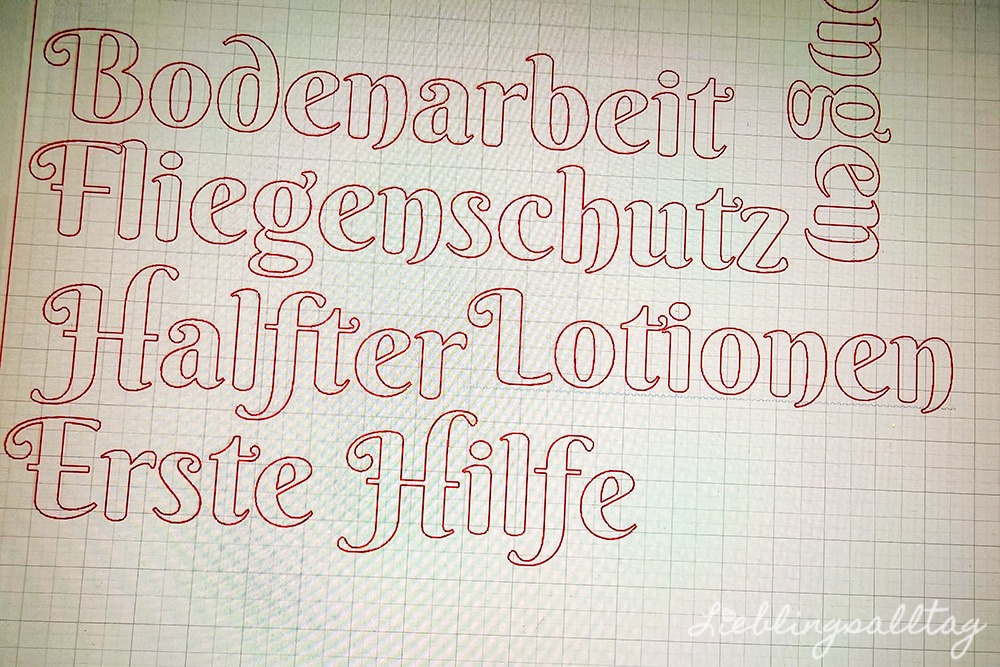 Bodenarbeit
Fliegenschutz
Halfter Lotionen
Erste Hilfe
Lieblingsalltag